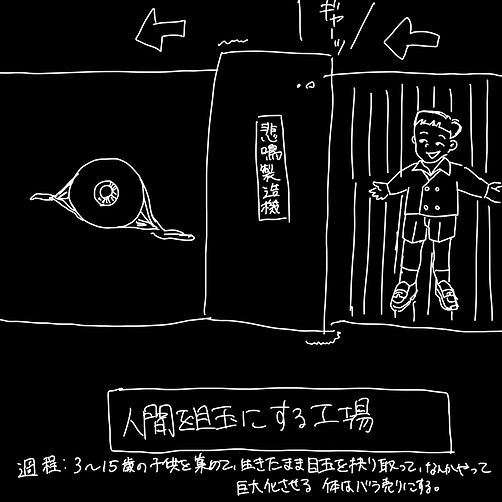 ギャーッ
悲鳴製造機
人間を目玉にする工場
過程：3〜15歳の子供を集めて、生きたまま目玉を抉り取って、なんかやって
巨大化させる 体はバラ売りにする。